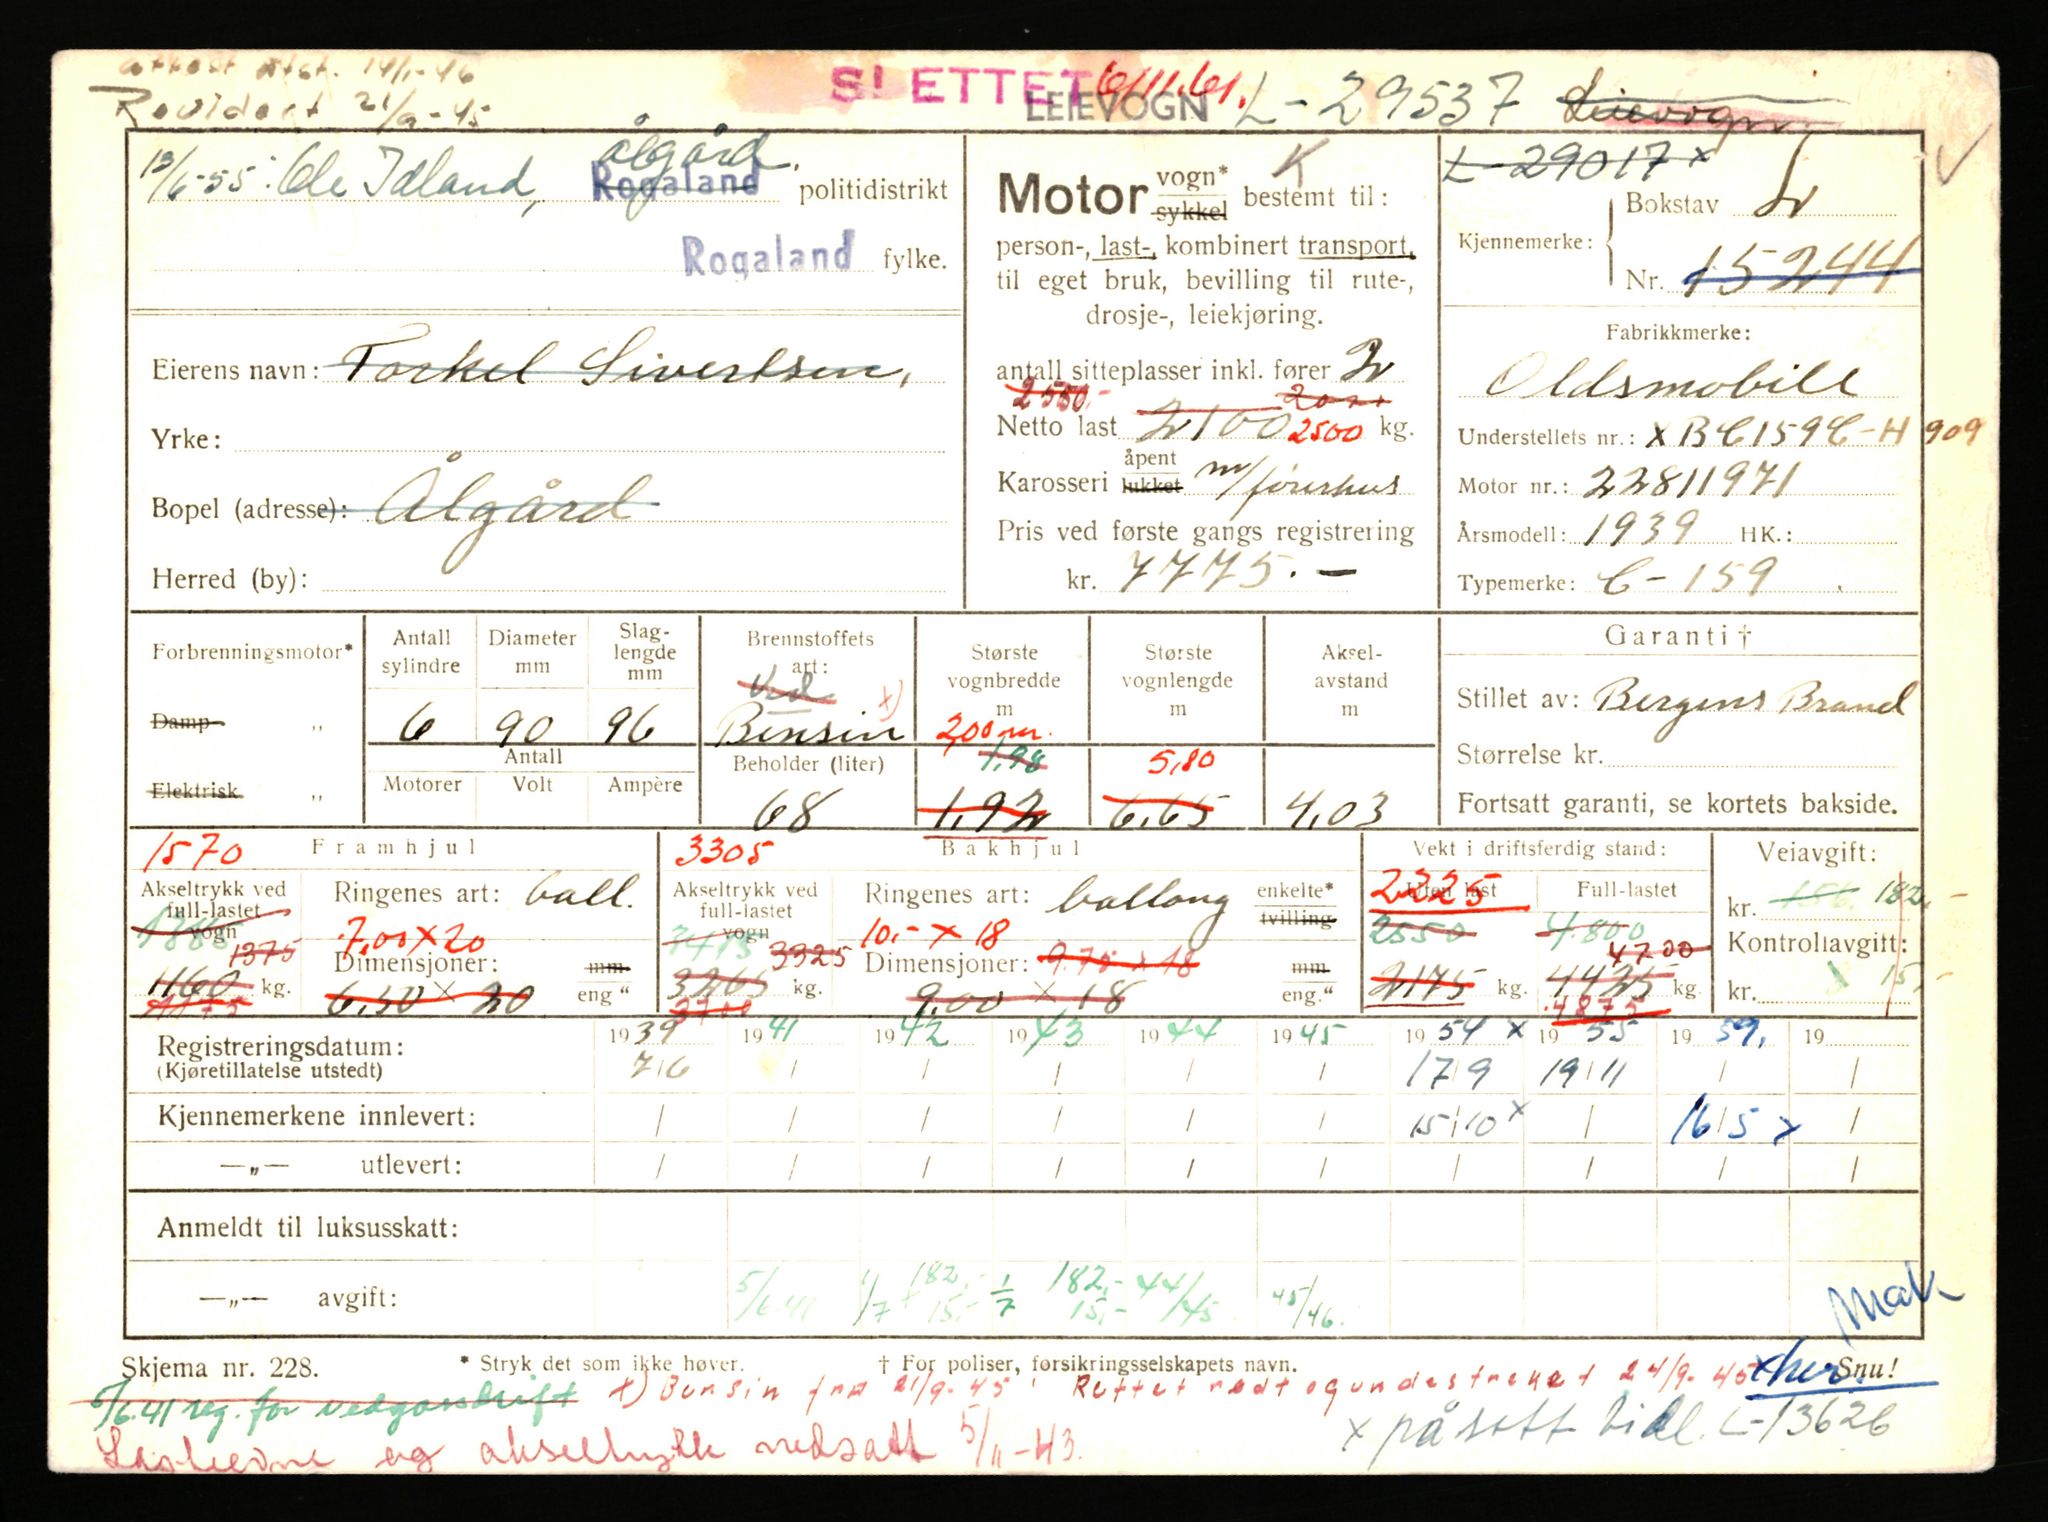 attest utst. 19/1-46
Revidert 21/9-45
SLETTET 6/11.61.
LEIEVOGN L-29537 Leievogn
13/6-55: Ole Idland, Ålgård.
Rogaland politidistrikt
Rogaland fylke.
Eierens navn: Torkel Sivertsen,
Yrke:
Bopel (adresse): Ålgård
Herred (by):
K
Motor vogn* sykkel bestemt til:
person-, last-, kombinert transport,
til eget bruk, bevilling til rute-,
drosje-, leiekjøring.
antall sitteplasser inkl. fører 2
2550.-
Netto last 2100 2500 kg.
Karosseri åpent lukket m/førerhus
Pris ved første gangs registrering
kr. 7775.—
L-29017 x
Kjennemerke: Bokstav L
Nr. 15244
Fabrikkmerke:
Oldsmobile
Understellets nr.: x BC159C-H909
Motor nr.: 22811971
Årsmodell: 1939 HK.:
Typemerke: C-159
Forbrenningsmotor*
Damp- „
Elektrisk „
Antall sylindre
6
Diameter mm
90
Slag-lengde mm
96
Antall
Motorer Volt Ampère
Brennstoffets art:
Ved x)
Bensin
Beholder (liter)
68
Største vognbredde m
2,00 m.
1,98
1,92
Største vognlengde m
5,80
6,65
Aksel-avstand m
4,03
Garanti †
Stillet av: Bergens Brand
Størrelse kr.
Fortsatt garanti, se kortets bakside.
1570 Framhjul
Akseltrykk ved full-lastet vogn
1375
1160 kg.
Ringenes art: ball.
7,00 x 20
Dimensjoner: mm. eng "
6,50 x 20
3305 Bakhjul
Akseltrykk ved full-lastet vogn
3325
3265 kg.
Ringenes art: ballong enkelte* tvilling
10,- x 18
Dimensjoner: 9.75 x 18 mm eng."
9,00 x 18
Vekt i driftsferdig stand:
Uten last Full-lastet
2225
2550 4.800
4700
2175 kg. 4425 kg.
4875
Veiavgift:
kr. 156. 182,-
Kontrollavgift:
kr. 15,-
Registreringsdatum: 1939 1941 1942 1943 1944 1945 1954 x 1955 1959. 19
(Kjøretillatelse utstedt) 7/6 / / / / / 17/9 19/11 / /
Kjennemerkene innlevert: / / / / / / 15/10 x / 16/5 x /
—„— utlevert: / / / / / / / / / /
Anmeldt til luksusskatt:
—„— avgift: 5/6.41 1/7 182,- 15,- 1/7 182,- 15,- 44/45 45/46.
Mak
Skjema nr. 228. * Stryk det som ikke høver. † For poliser, forsikringsselskapets navn. x her Snu!
5/6.41 reg. for vedgassdrift x) Bensin fra 21/9-45. Rettet rødt og understreket 24/9-45
x påsatt tidl. L-13626
Lasteevne og akseltrykk nedsatt 5/11-43.